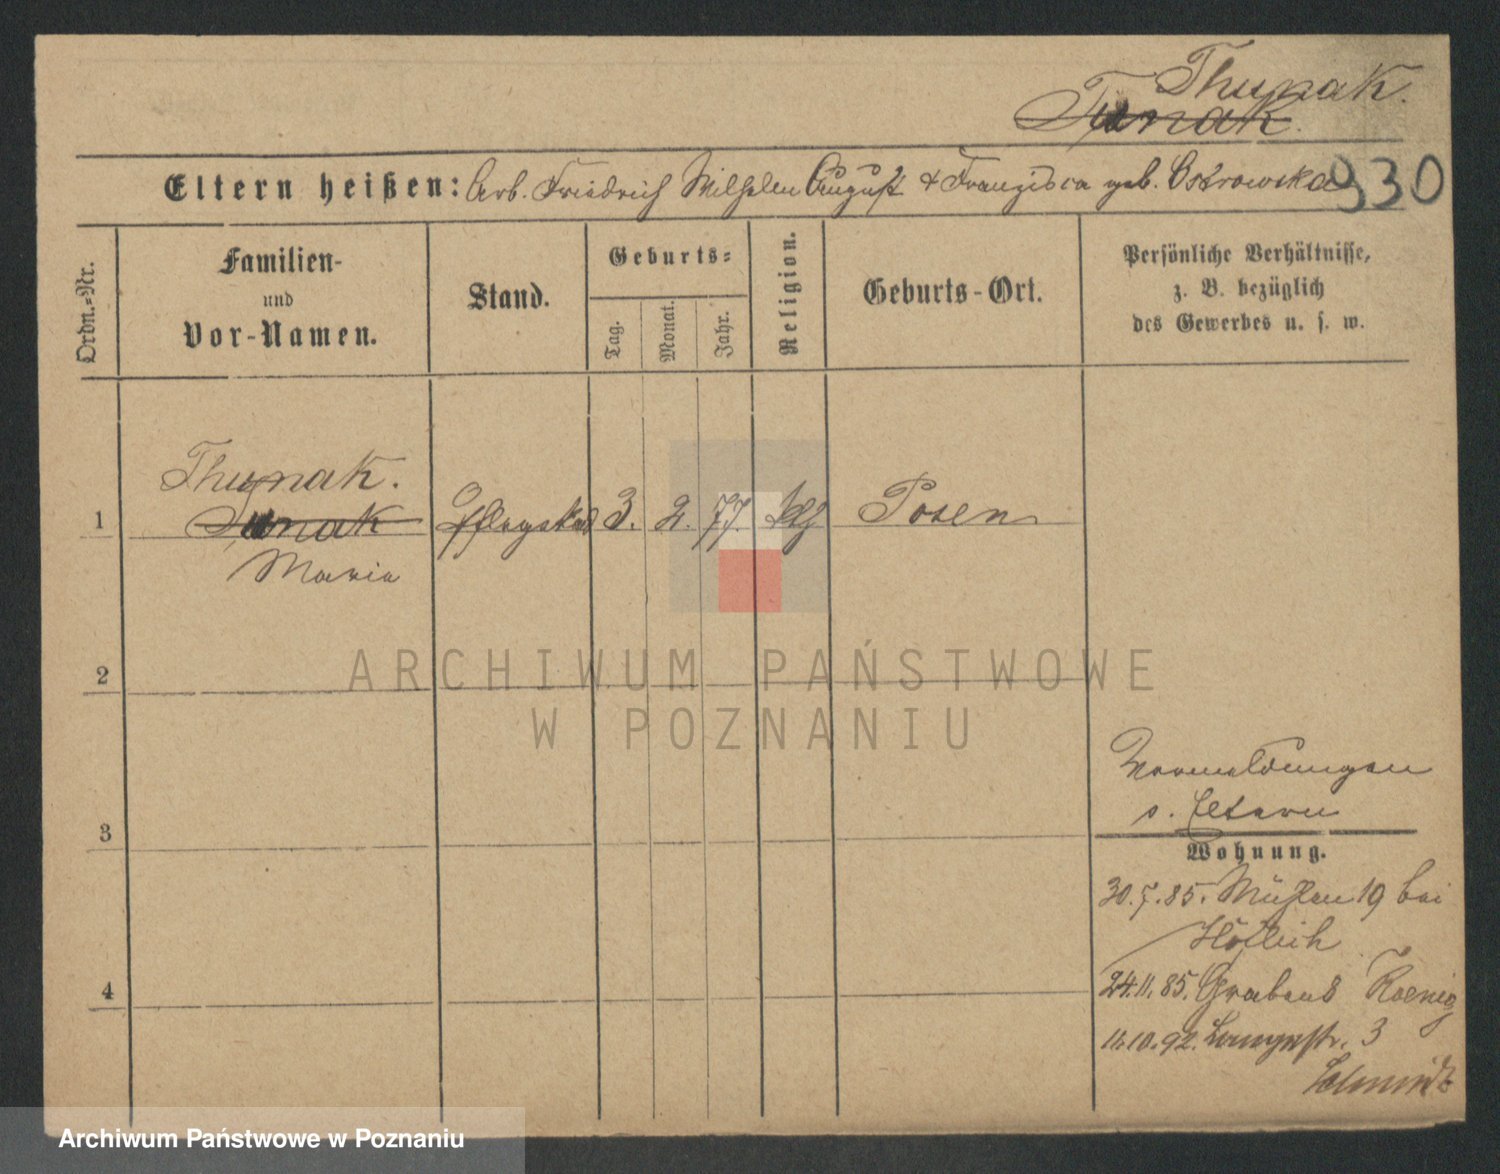 Thunak.
Tunak.
Eltern heißen: Arb. Friedrich Wilhelm August & Franzisca geb. Ostrowska
930
Ordn.=Nr.
Familien-
und
Vor-Namen.
Stand.
Geburts=
Tag.
Monat.
Jahr.
Religion.
Geburts-Ort.
Persönliche Verhältnisse,
z. B. bezüglich
des Gewerbes u. s. w.
Thunak.
1 Tunak 3. 2. 77. Posen
Maria
ARCHIWUM PAŃSTWOWE
W POZNANIU
2
3
4
s. Eltern
Wohnung.
30.7.85. Mühlen 19 bei
24.11.85. Graben 8 Koenig
11.10.92. Langestr. 3
Schmidt
Archiwum Państwowe w Poznaniu